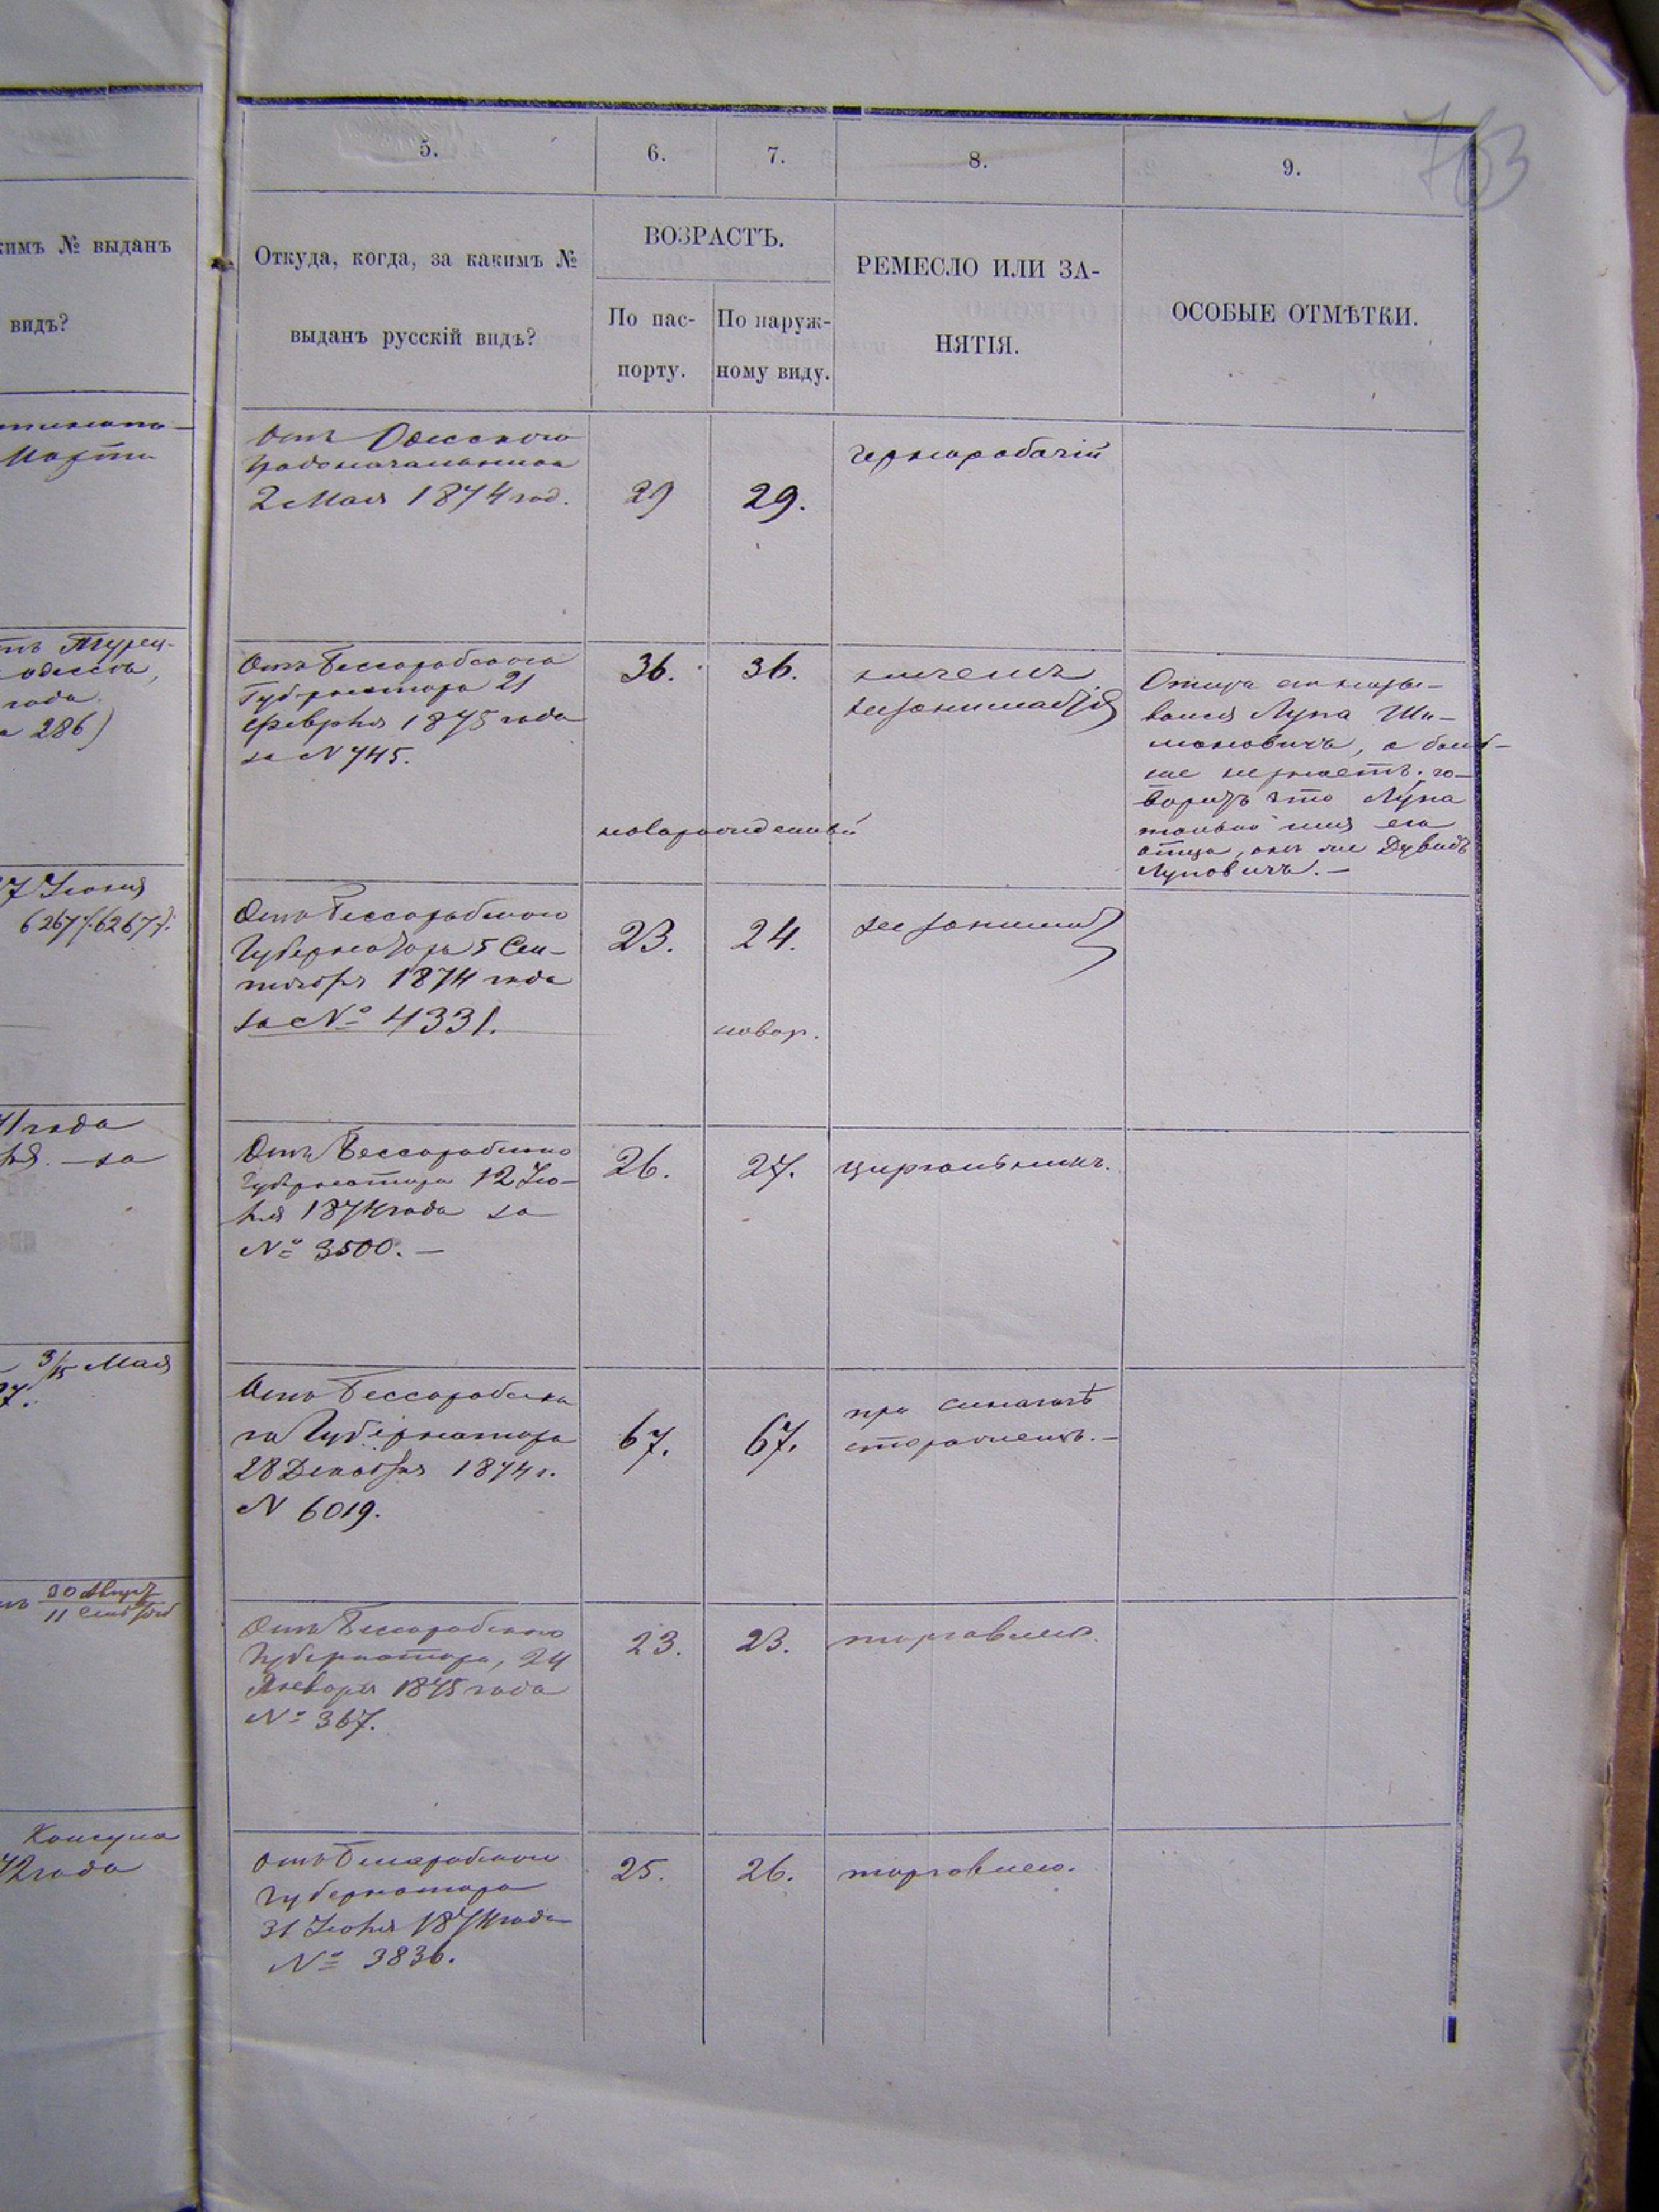 763
кимъ № выданъ
видъ?
Марта
одесса,
года
286)
7 Іюня
6267/6267
1 года
за
3/15 Мая
30 Август
11 Сентября
Консула
72 года
5.
6.
7.
8.
9.
Откуда, когда, за какимъ №
выданъ русскій видъ?
ВОЗРАСТЪ.
По пас-
порту.
По наруж-
ному виду.
РЕМЕСЛО ИЛИ ЗА-
НЯТІЯ.
ОСОБЫЕ ОТМѢТКИ.
Отъ Одесскаго
Градоначальника
2 Мая 1874 год.
29
29.
чернорабочій
Отъ Бессарабскаго
Губернатора 21
Февраля 1875 года
за N 745.
36.
36.
Отца его назы-
вался Лупа Ши-
моновичъ, а боль-
ше не знаетъ. го-
воритъ что Лупа
только имя его
отца, онъ же Дувидъ
Луповичъ. —
Отъ Бессарабскаго
Губернатора 5 Сен-
тября 1874 года
за № 4331.
23.
24.
Отъ Бессарабскаго
Губернатора 12 Ію-
ля 1874 года за
№ 3500. —
26.
27.
цирюльникъ.
Отъ Бессарабска
го Губернатора
28 Декабря 1874 г.
N 6019.
67.
67.
при синагогѣ
сторожемъ. —
Отъ Бессарабскаго
Губернатора, 24
Января 1875 года
№ 367.
23.
23.
торговлею.
Отъ Бессарабскаго
Губернатора
31 Іюля 1874 года
№ 3836.
25.
26.
торговлею.